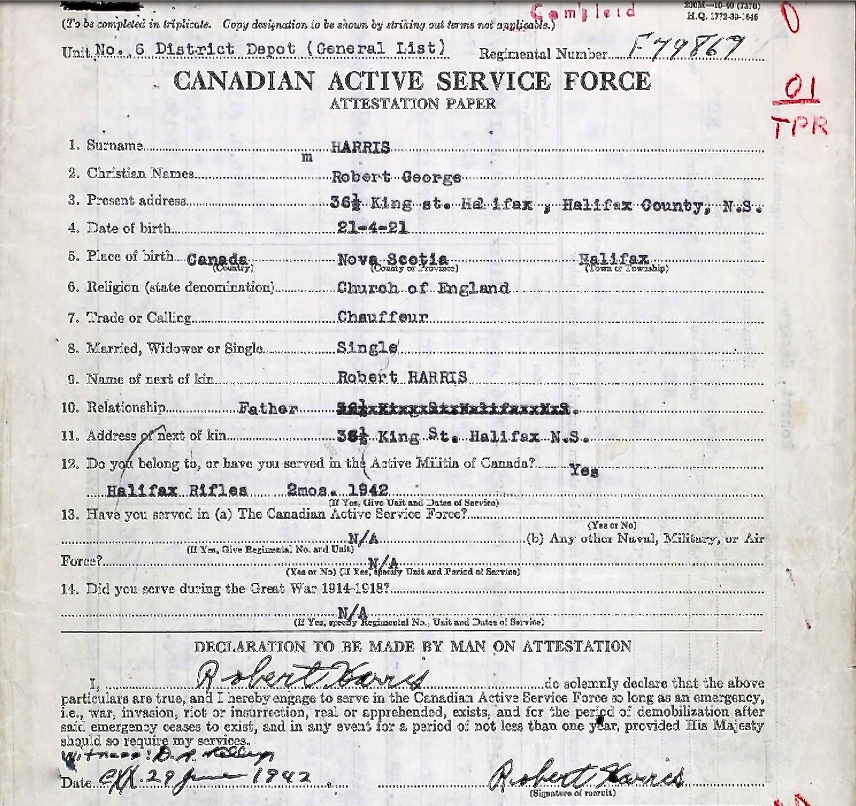 Completd
200M—10-40 (7376)
H.Q. 1772-39-1646
(To be completed in triplicate. Copy designation to be shown by striking out terms not applicable.)
Unit No. 6 District Depot (General List) Regimental Number F79869
CANADIAN ACTIVE SERVICE FORCE
ATTESTATION PAPER
01
TPR
1. Surname HARRIS
m
2. Christian Names Robert George
3. Present address 36½ King st. Halifax , Halifax County, N.S.
4. Date of birth 21-4-21
5. Place of birth Canada Nova Scotia Halifax
(Country) (County or Province) (Town or Township)
6. Religion (state denomination) Church of England
7. Trade or Calling Chauffeur
8. Married, Widower or Single Single
9. Name of next of kin Robert HARRIS
10. Relationship Father
11. Address of next of kin 36½ King St. Halifax N.S.
12. Do you belong to, or have you served in the Active Militia of Canada? Yes
Halifax Rifles 2mos. 1942
(If Yes, Give Unit and Dates of Service)
13. Have you served in (a) The Canadian Active Service Force?
(Yes or No)
N/A (b) Any other Naval, Military, or Air
(If Yes, Give Regimental No. and Unit)
Force? N/A
(Yes or No) (If Yes, specify Unit and Period of Service)
14. Did you serve during the Great War 1914-1918?
N/A
(If Yes, specify Regimental No., Unit and Dates of Service)
DECLARATION TO BE MADE BY MAN ON ATTESTATION
I, Robert Harris do solemnly declare that the above
particulars are true, and I hereby engage to serve in the Canadian Active Service Force so long as an emergency,
i.e., war, invasion, riot or insurrection, real or apprehended, exists, and for the period of demobilization after
said emergency ceases to exist, and in any event for a period of not less than one year, provided His Majesty
should so require my services.
Witness:
Date 29 June 1942 Robert Harris
(Signature of recruit)